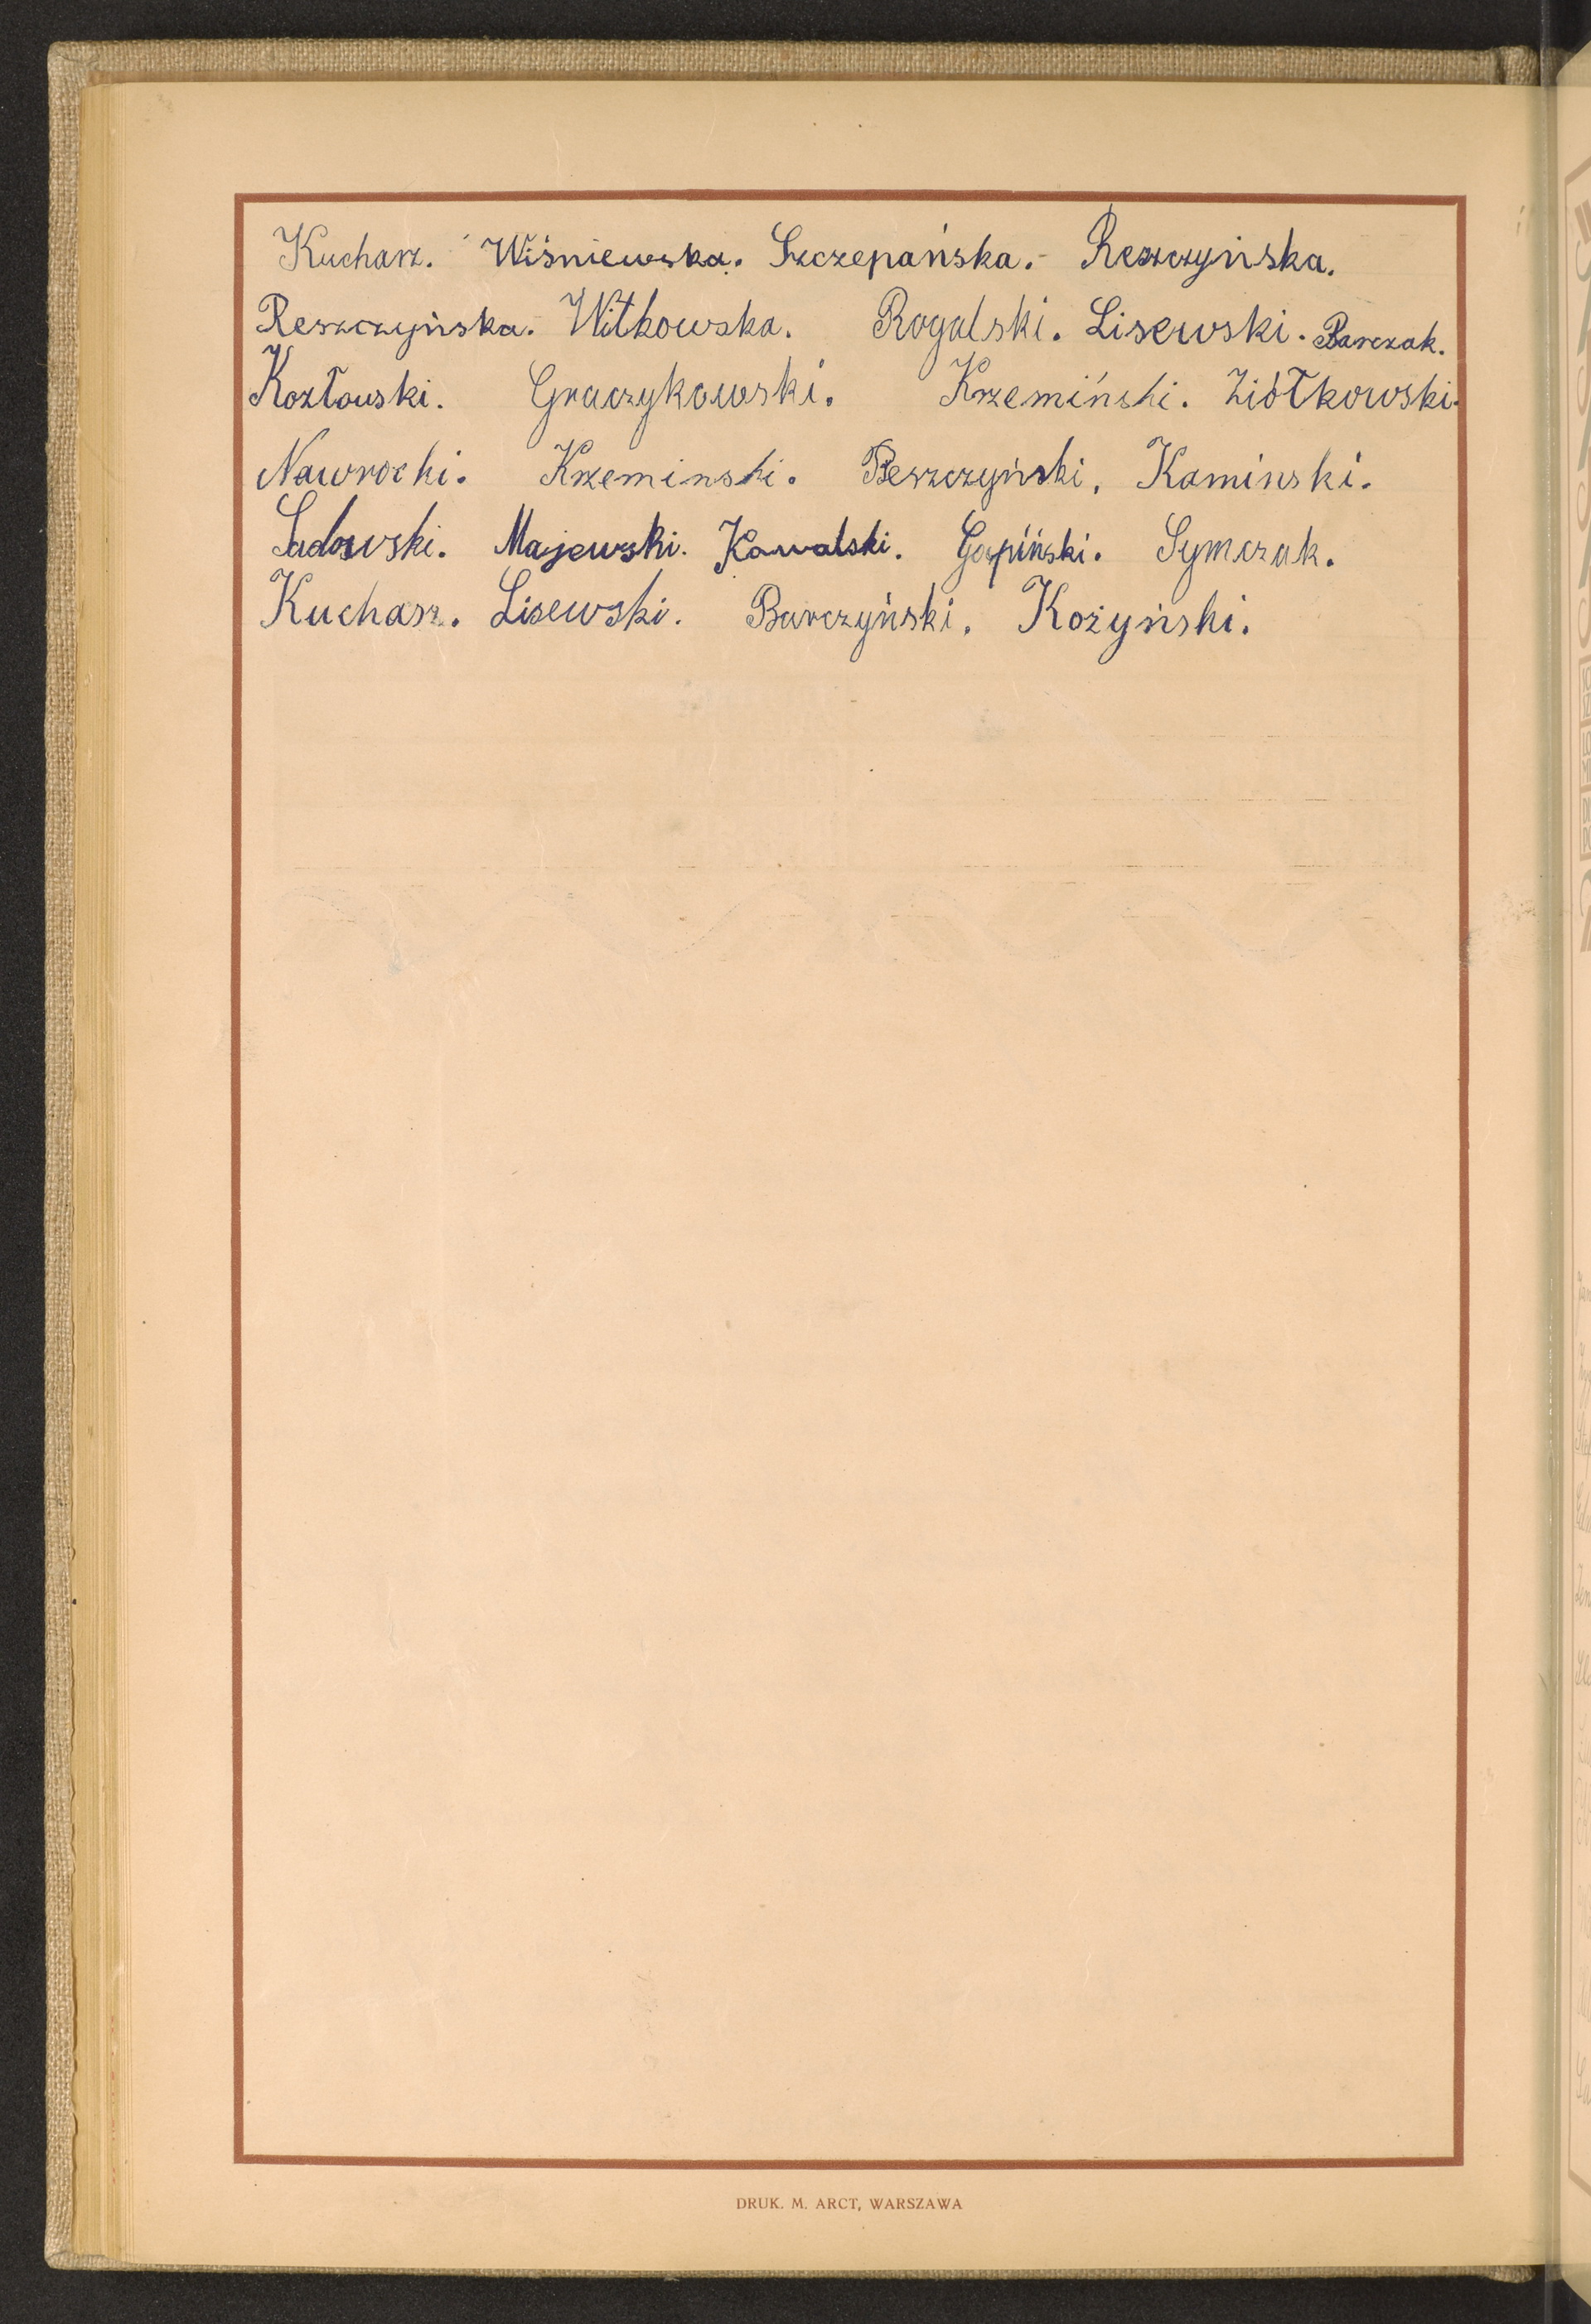 Kucharz. Wiśniewska. Szczepańska. Reszczyńska.
Reszczyńska. Witkowska. Rogalski. Lisewski. Barczak.
Kozłowski. Graczykowski. Krzemiński. Ziółkowski.
Nawrocki. Krzeminski. Reszczyński, Kaminski.
Sadowski. Majewski. Kowalski. Gapiński. Symczak.
Kucharz. Lisewski. Barczyński. Kożyński.
DRUK. M. ARCT, WARSZAWA